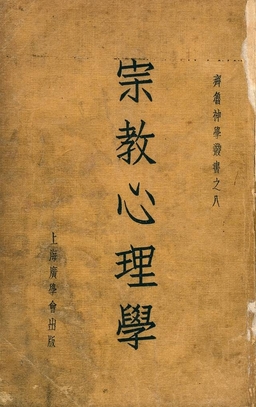 齊魯神學叢書之八
宗教心理學
上海廣學會出版